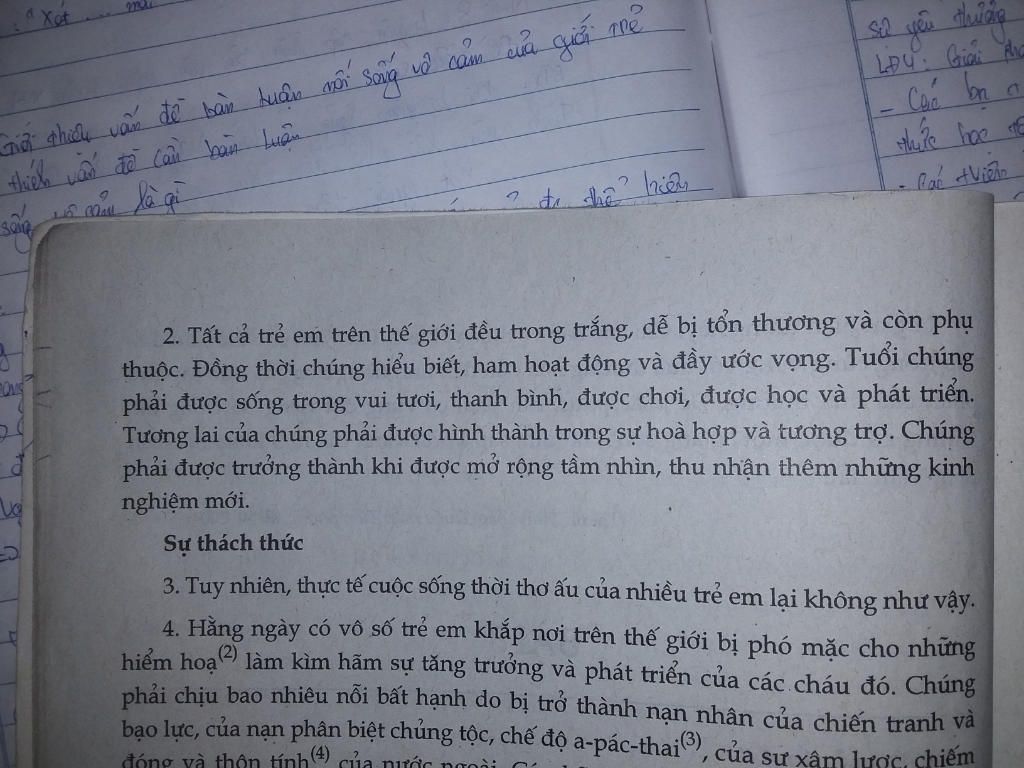 : "Xót ... mới
Giới thiệu vấn đề bàn luận nối sống vô cảm của giới trẻ
thích vấn đề cần bàn luận
sống vô cảm là gì
thể hiện
sử yêu thương
LĐ4: Giải
- Các bạn
thức học
- Các
2. Tất cả trẻ em trên thế giới đều trong trắng, dễ bị tổn thương và còn phụ
thuộc. Đồng thời chúng hiểu biết, ham hoạt động và đầy ước vọng. Tuổi chúng
phải được sống trong vui tươi, thanh bình, được chơi, được học và phát triển.
Tương lai của chúng phải được hình thành trong sự hoà hợp và tương trợ. Chúng
phải được trưởng thành khi được mở rộng tầm nhìn, thu nhận thêm những kinh
nghiệm mới.
Sự thách thức
3. Tuy nhiên, thực tế cuộc sống thời thơ ấu của nhiều trẻ em lại không như vậy.
4. Hằng ngày có vô số trẻ em khắp nơi trên thế giới bị phó mặc cho những
hiểm hoạ(2) làm kìm hãm sự tăng trưởng và phát triển của các cháu đó. Chúng
phải chịu bao nhiêu nỗi bất hạnh do bị trở thành nạn nhân của chiến tranh và
bạo lực, của nạn phân biệt chủng tộc, chế độ a-pác-thai(3), của sự xâm lược, chiếm
đóng và thôn tính(4) của nước ngoài.